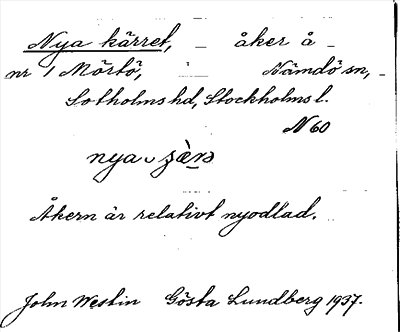 Nya kärret, åker å
nr 1 Mörtö, Nämdö sn,
Sotholms hd, Stockholms l.
N 60
nya
Åkern är relativt nyodlad.
John Westin Gösta Lundberg 1937.